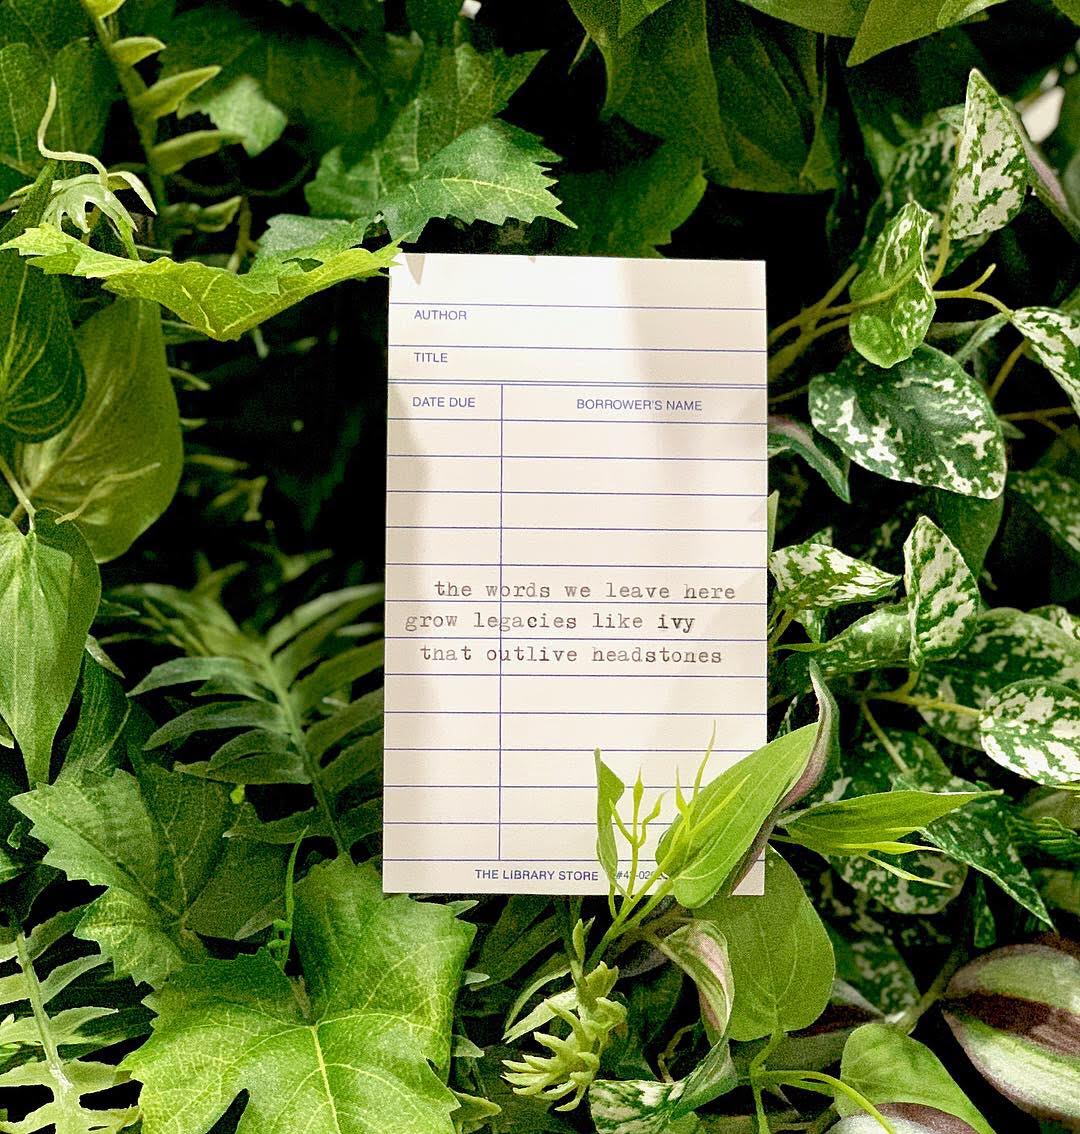 AUTHOR
TITLE
DATE DUE BORROWER'S NAME
the words we leave here
grow legacies like ivy
that outlive headstones
THE LIBRARY STORE